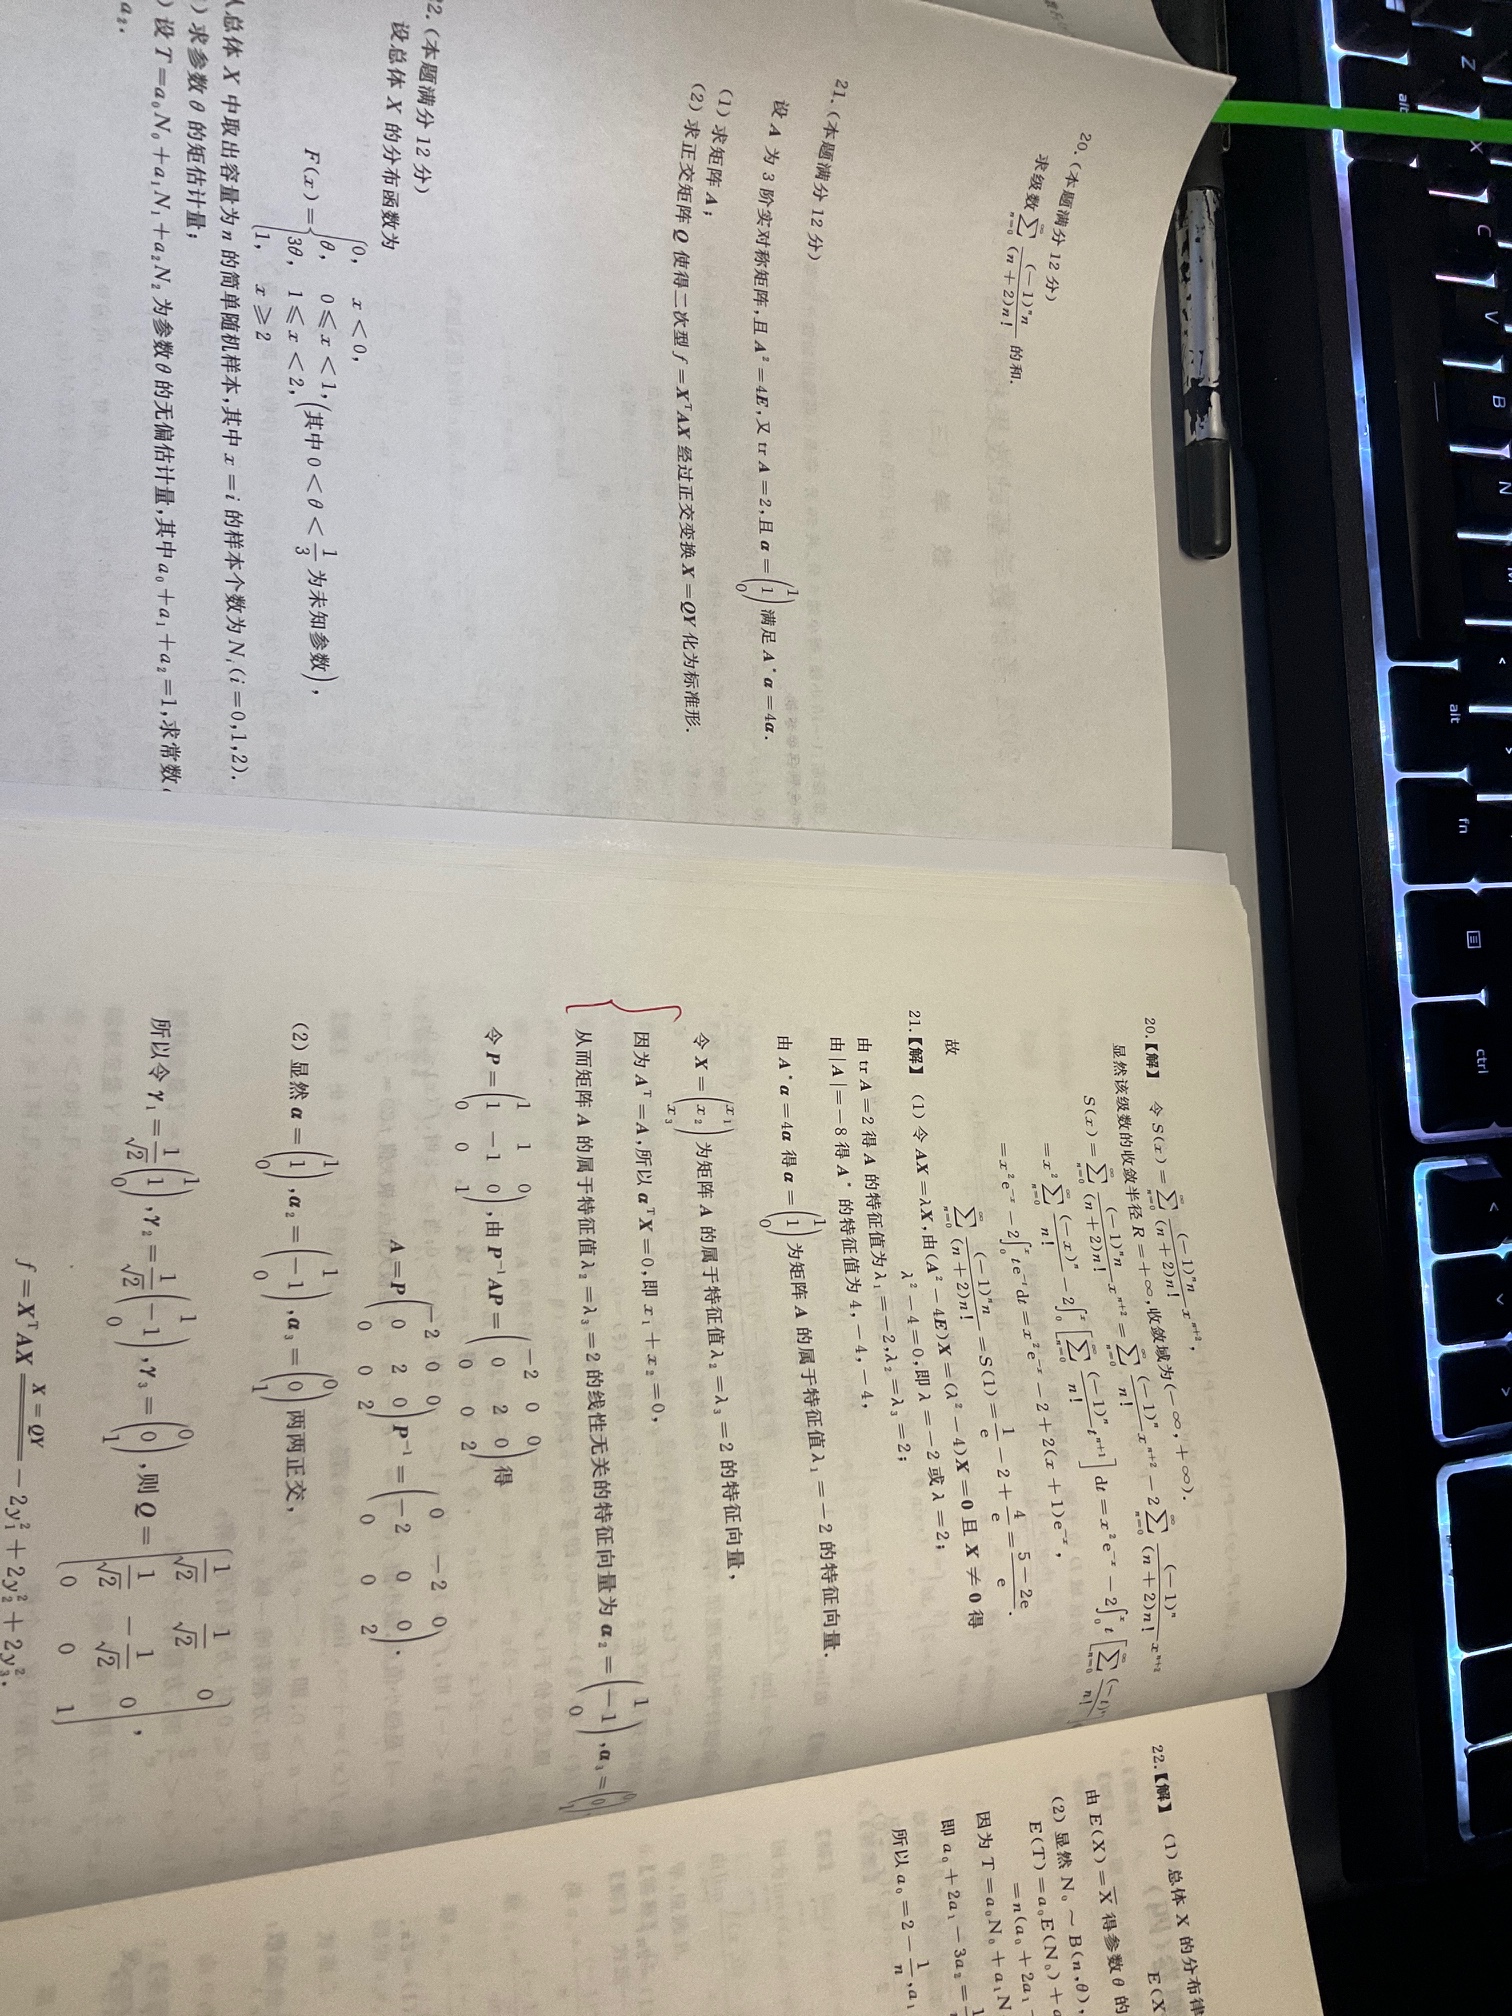 20.(本题满分 12 分)
求级数∑_{n=0}^{∞} (-1)^n n/((n+2)n!) 的和.
21.(本题满分 12 分)
设 A 为 3 阶实对称矩阵,且 A²=4E,又 tr A=2,且 α=(1 1 0) 满足 A*α=4α.
(1)求矩阵 A;
(2)求正交矩阵 Q 使得二次型 f=X^T AX 经过正交变换 X=QY 化为标准形.
2.(本题满分 12 分)
设总体 X 的分布函数为
F(x)={0, x<0,
θ, 0≤x<1,
3θ, 1≤x<2,
1, x≥2
(其中 0<θ<1/3 为未知参数),
总体 X 中取出容量为 n 的简单随机样本,其中 x=i 的样本个数为 N_i(i=0,1,2).
)求参数 θ 的矩估计量;
)设 T=a₀N₀+a₁N₁+a₂N₂ 为参数 θ 的无偏估计量,其中 a₀+a₁+a₂=1,求常数
a₂.
20.【解】 令 S(x)=∑_{n=0}^{∞} (-1)^n n/((n+2)n!) x^{n+2},
显然该级数的收敛半径 R=+∞,收敛域为(-∞,+∞).
S(x)=∑_{n=0}^{∞} (-1)^n n/((n+2)n!) x^{n+2}=∑_{n=0}^{∞} (-1)^n/n! x^{n+2}-2∑_{n=0}^{∞} (-1)^n/((n+2)n!) x^{n+2}
=x²∑_{n=0}^{∞} (-x)^n/n!-2∫₀^x[∑_{n=0}^{∞} (-1)^n/n! t^{n+1}]dt=x²e^{-x}-2∫₀^x t[∑_{n=0}^{∞} (-t)^n/n!
=x²e^{-x}-2∫₀^x te^{-t}dt=x²e^{-x}-2+2(x+1)e^{-x},
故
∑_{n=0}^{∞} (-1)^n n/((n+2)n!)=S(1)=1/e-2+4/e=(5-2e)/e.
21.【解】 (1)令 AX=λX,由(A²-4E)X=(λ²-4)X=0 且 X≠0 得
λ²-4=0,即 λ=-2 或 λ=2;
由 tr A=2 得 A 的特征值为 λ₁=-2,λ₂=λ₃=2;
由|A|=-8 得 A* 的特征值为 4,-4,-4,
由 A*α=4α 得 α=(1 1 0) 为矩阵 A 的属于特征值 λ₁=-2 的特征向量.
令 X=(x₁ x₂ x₃) 为矩阵 A 的属于特征值 λ₂=λ₃=2 的特征向量,
因为 A^T=A,所以 α^T X=0,即 x₁+x₂=0,
从而矩阵 A 的属于特征值 λ₂=λ₃=2 的线性无关的特征向量为 α₂=(1 -1 0),α₃=(0 0 1)
令 P=(1 1 0; 1 -1 0; 0 0 1),由 P⁻¹AP=(-2 0 0; 0 2 0; 0 0 2) 得
A=P(-2 0 0; 0 2 0; 0 0 2)P⁻¹=(0 -2 0; -2 0 0; 0 0 2).
(2)显然 α=(1 1 0),α₂=(1 -1 0),α₃=(0 0 1) 两两正交,
所以令 γ₁=1/√2(1 1 0),γ₂=1/√2(1 -1 0),γ₃=(0 0 1),则 Q=(1/√2 1/√2 0; 1/√2 -1/√2 0; 0 0 1),
f=X^T AX X=QY -2y₁²+2y₂²+2y₃².
22.【解】 (1)总体 X 的分布律
E(X
由 E(X)=X̄ 得参数 θ 的
(2)显然 N₀~B(n,θ),
E(T)=a₀E(N₀)+
=n(a₀+2a₁-
因为 T=a₀N₀+a₁N
即 a₀+2a₁-3a₂=
所以 a₀=2-1/n,a₁